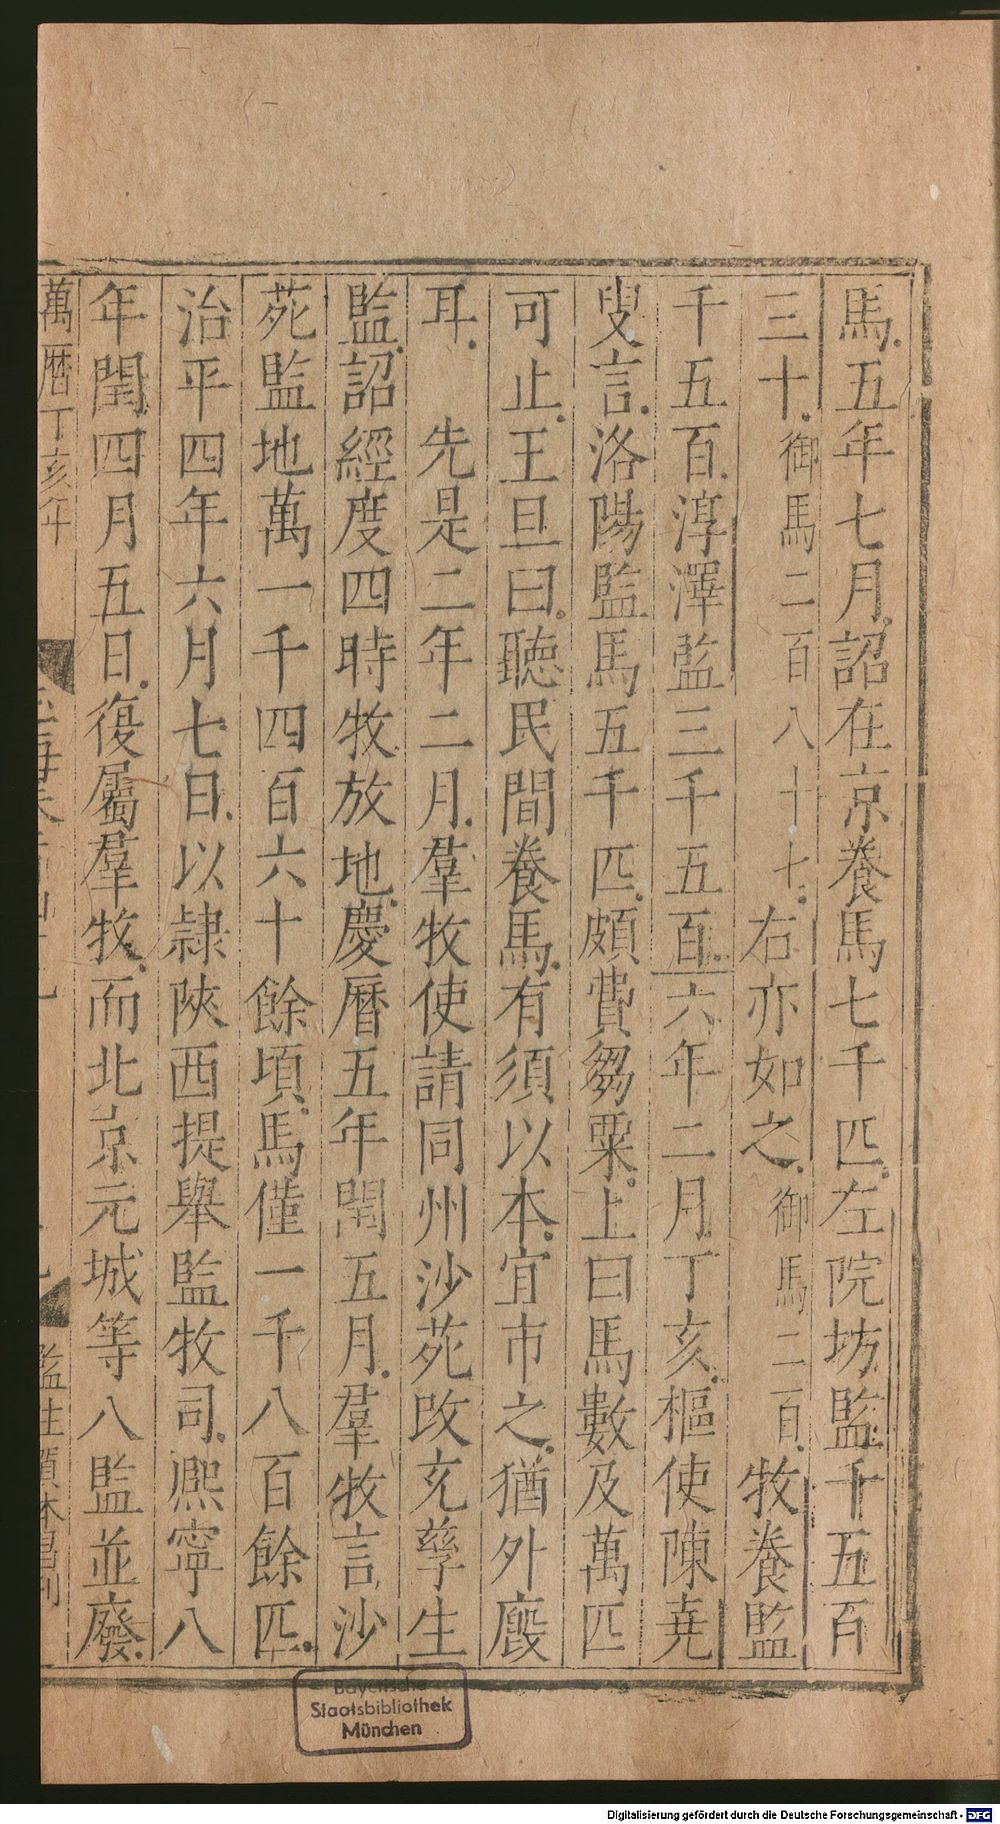 馬五年七月詔在京養馬七千匹左院坊監千五百
三十御馬二百八十七右亦如之御馬二百牧養監
千五百淳澤監三千五百六年二月丁亥樞使陳堯
叟言洛陽監馬五千匹頗費芻粟上曰馬數及萬匹
可止王旦曰聽民間養馬有須以本宜市之猶外廄
耳　先是二年二月羣牧使請同州沙苑改充孳生
監詔經度四時牧放地慶曆五年閏五月羣牧言沙
苑監地萬一千四百六十餘頃馬僅一千八百餘匹
治平四年六月七日以隷陝西提舉監牧司熈寧八
年閏四月五日復屬羣牧而北京元城等八監並廢
萬曆丁亥年
監生
刋
Bayerische
Staatsbibliothek
München
Digitalisierung gefördert durch die Deutsche Forschungsgemeinschaft - DFG